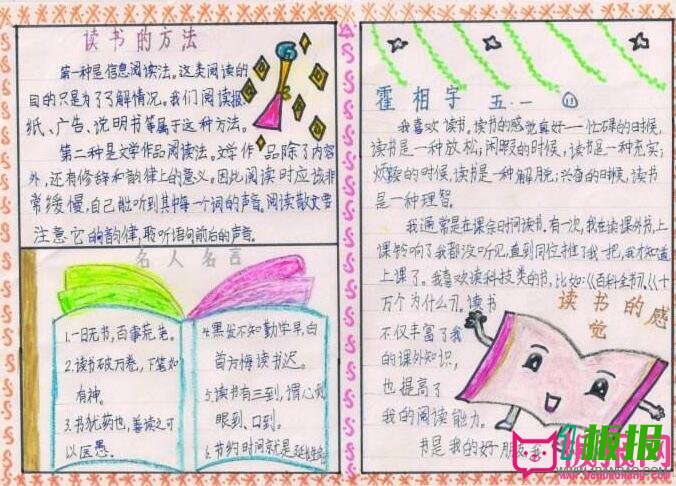 读书的方法
第一种是信息阅读法。这类阅读的
目的只是为了了解情况。我们阅读报
纸、广告、说明书等属于这种方法。
第二种是文学作品阅读法。文学作品除了内容
外，还有修辞和韵律上的意义。因此阅读时应该非
常缓慢，自己能听到其中每一个词的声音。阅读散文要
注意它的韵律，聆听语句前后的声音。
名人名言
1.一日无书，百事荒芜。
2.读书破万卷，下笔如
有神。
3.书犹药也，善读之可
以医愚。
4.黑发不知勤学早，白
首方悔读书迟。
5.读书有三到，谓心到
眼到、口到。
6.节约时间就是延长生命
霍相宇 五.一
我喜欢读书。读书的感觉真好——忙碌的时候，
读书是一种放松；闲暇的时候，读书是一种充实；
烦躁的时候，读书是一种解脱；兴奋的时候，读书
是一种理智。
我通常是在课余时间读书。有一次，我在读课外书，上
课铃响了我都没听见，直到同位推了我一把，我才知道
上课了。我喜欢读科技类的书，比如：《百科全书》、《十
万个为什么》。读书
不仅丰富了我
的课外知识，
也提高了
我的阅读能力。
书是我的好朋友
读书的感
觉
板报网